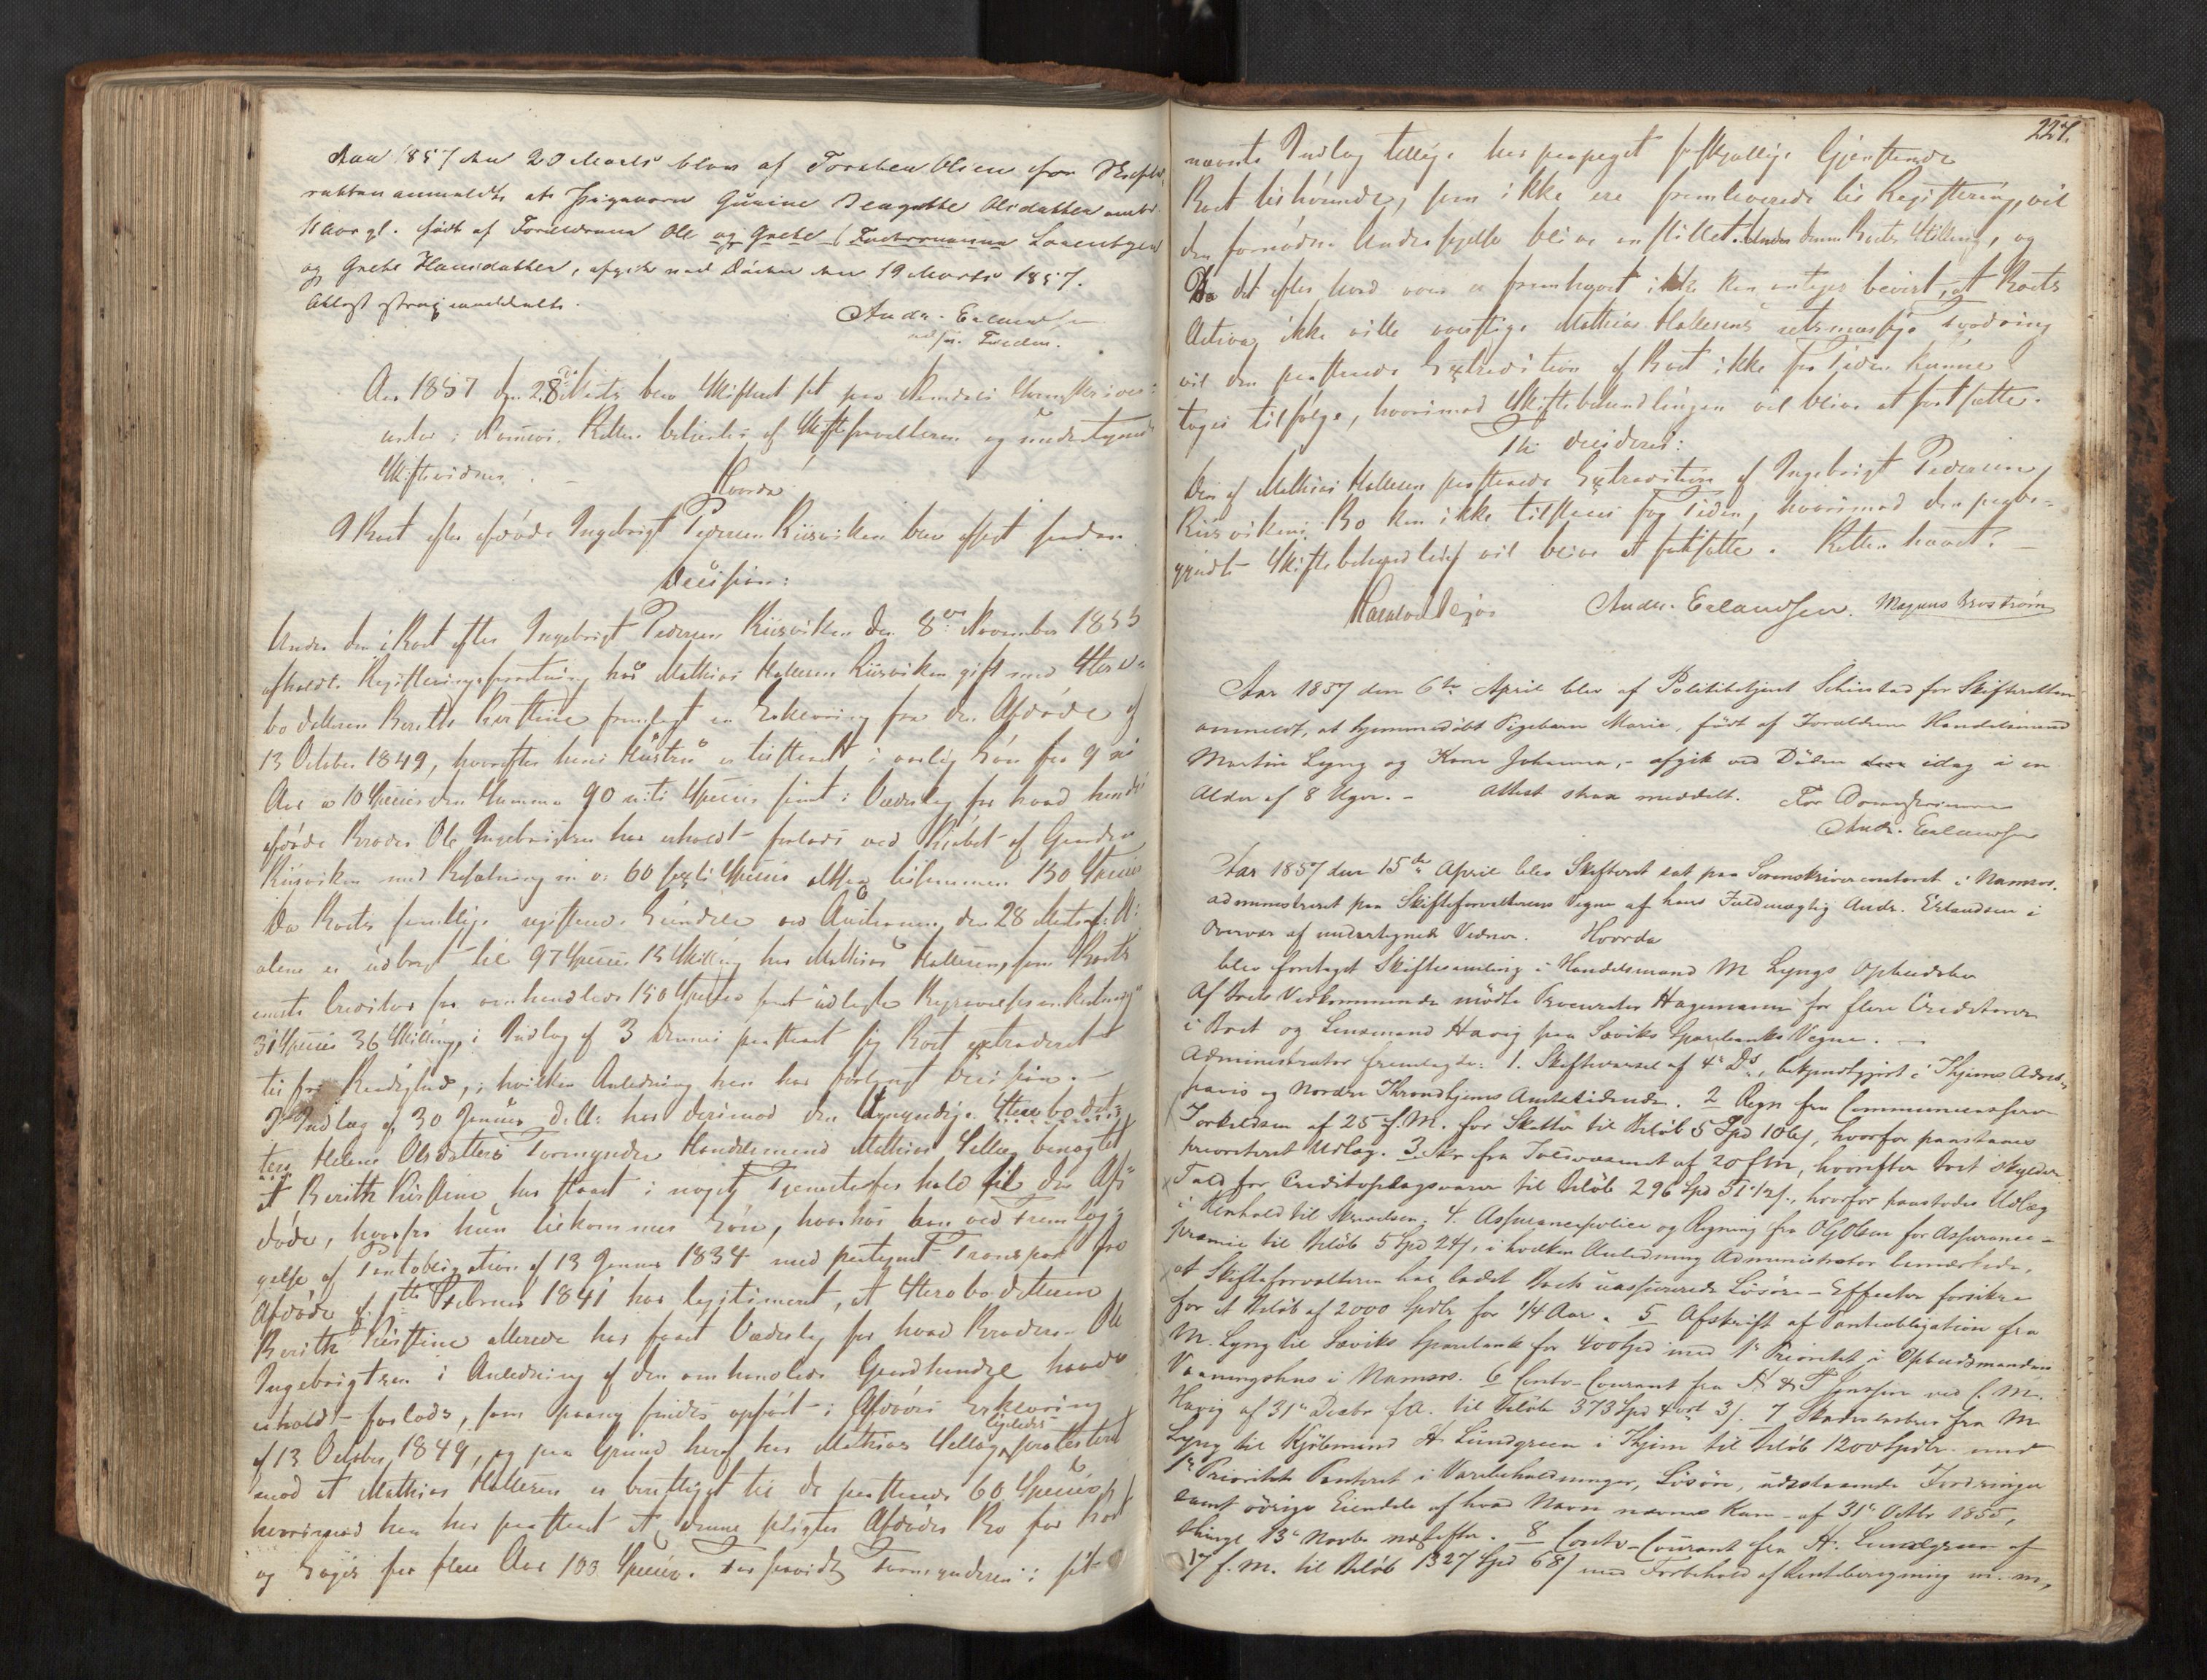 Aar 1857 den 20 Marts blev af Torsten Olsen for Skifte-
retten anmeldt at Pigebarn Gurine Olsdatter
11 Aar gl. født af Forældrene Ole og Grethe
og Grethe Hansdatter, afgik ved Døden den 19 Marts 1857.
Attest strax meddelt.
Andr. Erlandsen
Aar 1857 den 28de Marts blev Skifteret sat paa Namdals Sorenskriver-
contor i Namsos. Retten betjentes af Skifteforvalteren og undertegnede
Skiftevidner.
Hvorda
I Boet efter afdøde Ingebrigt Pedersen Riisviken blev afsagt saadan
Decision:
Under den i Boet efter Ingebrigt Pedersen Riisviken den 8de November 1855
afholdte Registreringsforretning har Mathias Hallesen Riisviken gift med Stervbo-
datteren Berith Kirstine fremlagt en Erklæring fra den Afdøde af
13 October 1849, hvorefter hans Hustru er tilstaaet i aarlig Løn for 9 ni
Aar a 10 Species den Summa 90 niti Species samt i Vederlag for hvad hendes
afdøde Broder Ole Ingebrigtsen har erholdt forlods ved Kjøbet af Gaarden
Riisviken med Besætning m.v. 60 sexti Species altsaa tilsammen 150 Species
Da Boets samtlige Eiendele ved Auctionen den 28 Marts f. A.
alene er udbragt til 97 Species 13 Skilling har Mathias Hallesen, som Boets
eneste Creditor for omhandlede 150 Species samt udlagte Begravelsesomkostninger
31 Species 36 Skilling, i Indlæg af 3 dennes paastaaet sig Boet extraderet
til fri Raadighed, i hvilken Anledning han har forlangt Decision. —
I Indlæg af 30 Januar d. A. har derimod den Umyndige Stervbodatter
Helene Olsdatters Formynder Handelsmand Mathias Sellæg benægtet
at Berith Kirstine har staaet i noget Tjenesteforhold til den Af-
døde, hvorfor hun tilkommer Løn, hvorhos han ved Fremlæg-
gelse af Pantobligation af 13 Januar 1834 med paategnet Transport fra
Afdøde af 1ste Februar 1841 har legitimeret, at Stervbodatteren
Berith Kirstine allerede har faaet Vederlag for hvad Broderen Ole
Ingebrigtsen i Anledning af den omhandlede Gaardhandel havde
erholdt forlods, som findes opført i Afdødes Erklæring
af 13 October 1849, og paa Grund heraf har Mathias Sellæg ligeledes protesteret
mod at Mathias Hallesen er berettiget til de paastaaede 60 Species,
hvorimod han har paastaaet at denne pligter Afdødes Bo for
og Løger for flere Aar 103 Species. Formynderen i sit
227.
nævnte Indlæg tillige har paapeget forskjellige Gjenstande
Boet tilhørende, som ikke ere fremleverede til Registrering, vil
den fornødne Undersøgelse blive anstillet. Under denne Boets Stilling, og
Da det efter hvad som er fremkommet ikke kan antages bevist, at Boets
Activa ikke ville overstige Mathias Hallesens retsmæssige Fordring
vil den paastaaede Extradition af Boet ikke for Tiden kunne
tages tilfølge, hvorimod Skiftebehandlingen vil blive at fortsætte.
Thi decideres:
Den af Mathias Hallesen paastaaede Extradition af Ingebrigt Pedersen
Riisvikens Bo kan ikke tilstaaes for Tiden, hvorimod den paabe-
gyndte Skiftebehandling vil blive at fortsætte. Retten hævet. —
Andr. Erlandsen. Magnus Brostrøm
Aar 1857 den 6te April blev af Politibetjent Schiestad for Skifteretten
anmeldt, at hjemmedøbt Pigebarn Marie, født af Forældrene Handelsmand
Martin Lyng og Kone Johanna, - afgik ved Døden idag i en
Alder af 8 Uger. - Attest strax meddelt. For Sorenskriveren
Andr. Erlandsen
Aar 1857 den 15de April blev Skifteret sat paa Sorenskrivercontoret i Namsos.
administreret paa Skifteforvalterens Vegne af hans Fuldmægtig Andr. Erlandsen i
Overvær af undertegnede Vidner. Hvorda
blev foretaget Skiftesamling i Handelsmand M Lyngs Opbudsbo
Af Boets Vedkommende mødte Procurator Hagemann for flere Creditorer
i Boet og Lensmand Havig paa Sæviks Sparebanks Vegne. —
Administrator fremlagde: 1. Skiftevarsel af 4de Ds, bekjendtgjort i Thjems Adresse-
avis og Nordre Throndhjems Amtstidende. 2 Regn fra Communekasserer
Torkildsen af 25 f. M. for Skatter til Beløb 5 Spd 106 s, hvorfor paastaaes
prioriteret Udlæg. 3. Skr fra Toldvæsenet af 20 f M, hvorefter Boet skylder
Told for Creditoplagsvarer til Beløb 296 Spd 51 1/2 s., hvorfor paastodes Udlæg
i Henhold til Skrivelsen; 4. Assurancepolice og Regning fra O G Olsen for Assurance-
præmie til Beløb 5 Spd 24 s, i hvilken Anledning Administrator bemærkede,
at Skifteforvalteren har ladet Boets uassurerede Løsøre-Effecter forsikre
for et Beløb af 2000 Spdlr for 1/4 Aar. 5 Afskrift af Pantobligation fra
M. Lyng til Sæviks Sparebank for 400 Spd med 1ste Prioritet i Opbudsmandens
Vaaningshus i Namsos. 6 Conto-Courant fra N & T Jenssen ved L. M.
Havig af 31te Decbr f.A. til Beløb 373 Spd 4 ort 3 s. 7 Skadesløsbrev fra M
Lyng til Kjøbmand H. Lundgreen i Thjem til Beløb 1200 Spdlr. med
1ste Prioritets Panteret i Varebeholdninger, Løsøre, udestaaende Fordringer
samt øvrige Eiendele af hvad Navn nævnes kan - af 31te Octbr 1855,
thinglæst 13de Novbr næstefter. 8 Conto-Courant fra H. Lundgreen af
17 f. M. til Beløb 1327 Spd 68 s med Forbehold af Renteberegning m. m,